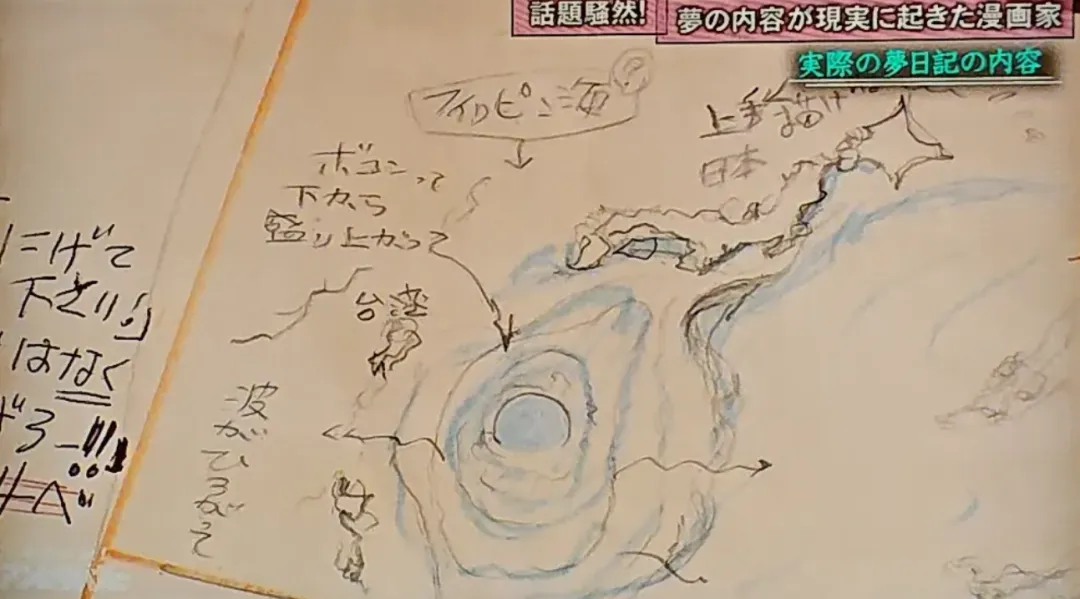 話題騒然!
夢の内容が現実に起きた漫画家
実際の夢日記の内容
フィリピン海
上手く描け
日本
ボコンって
下から
盛り上がって
台湾
波がひろがって
にげて
下さい」
はなく
げろー!!!